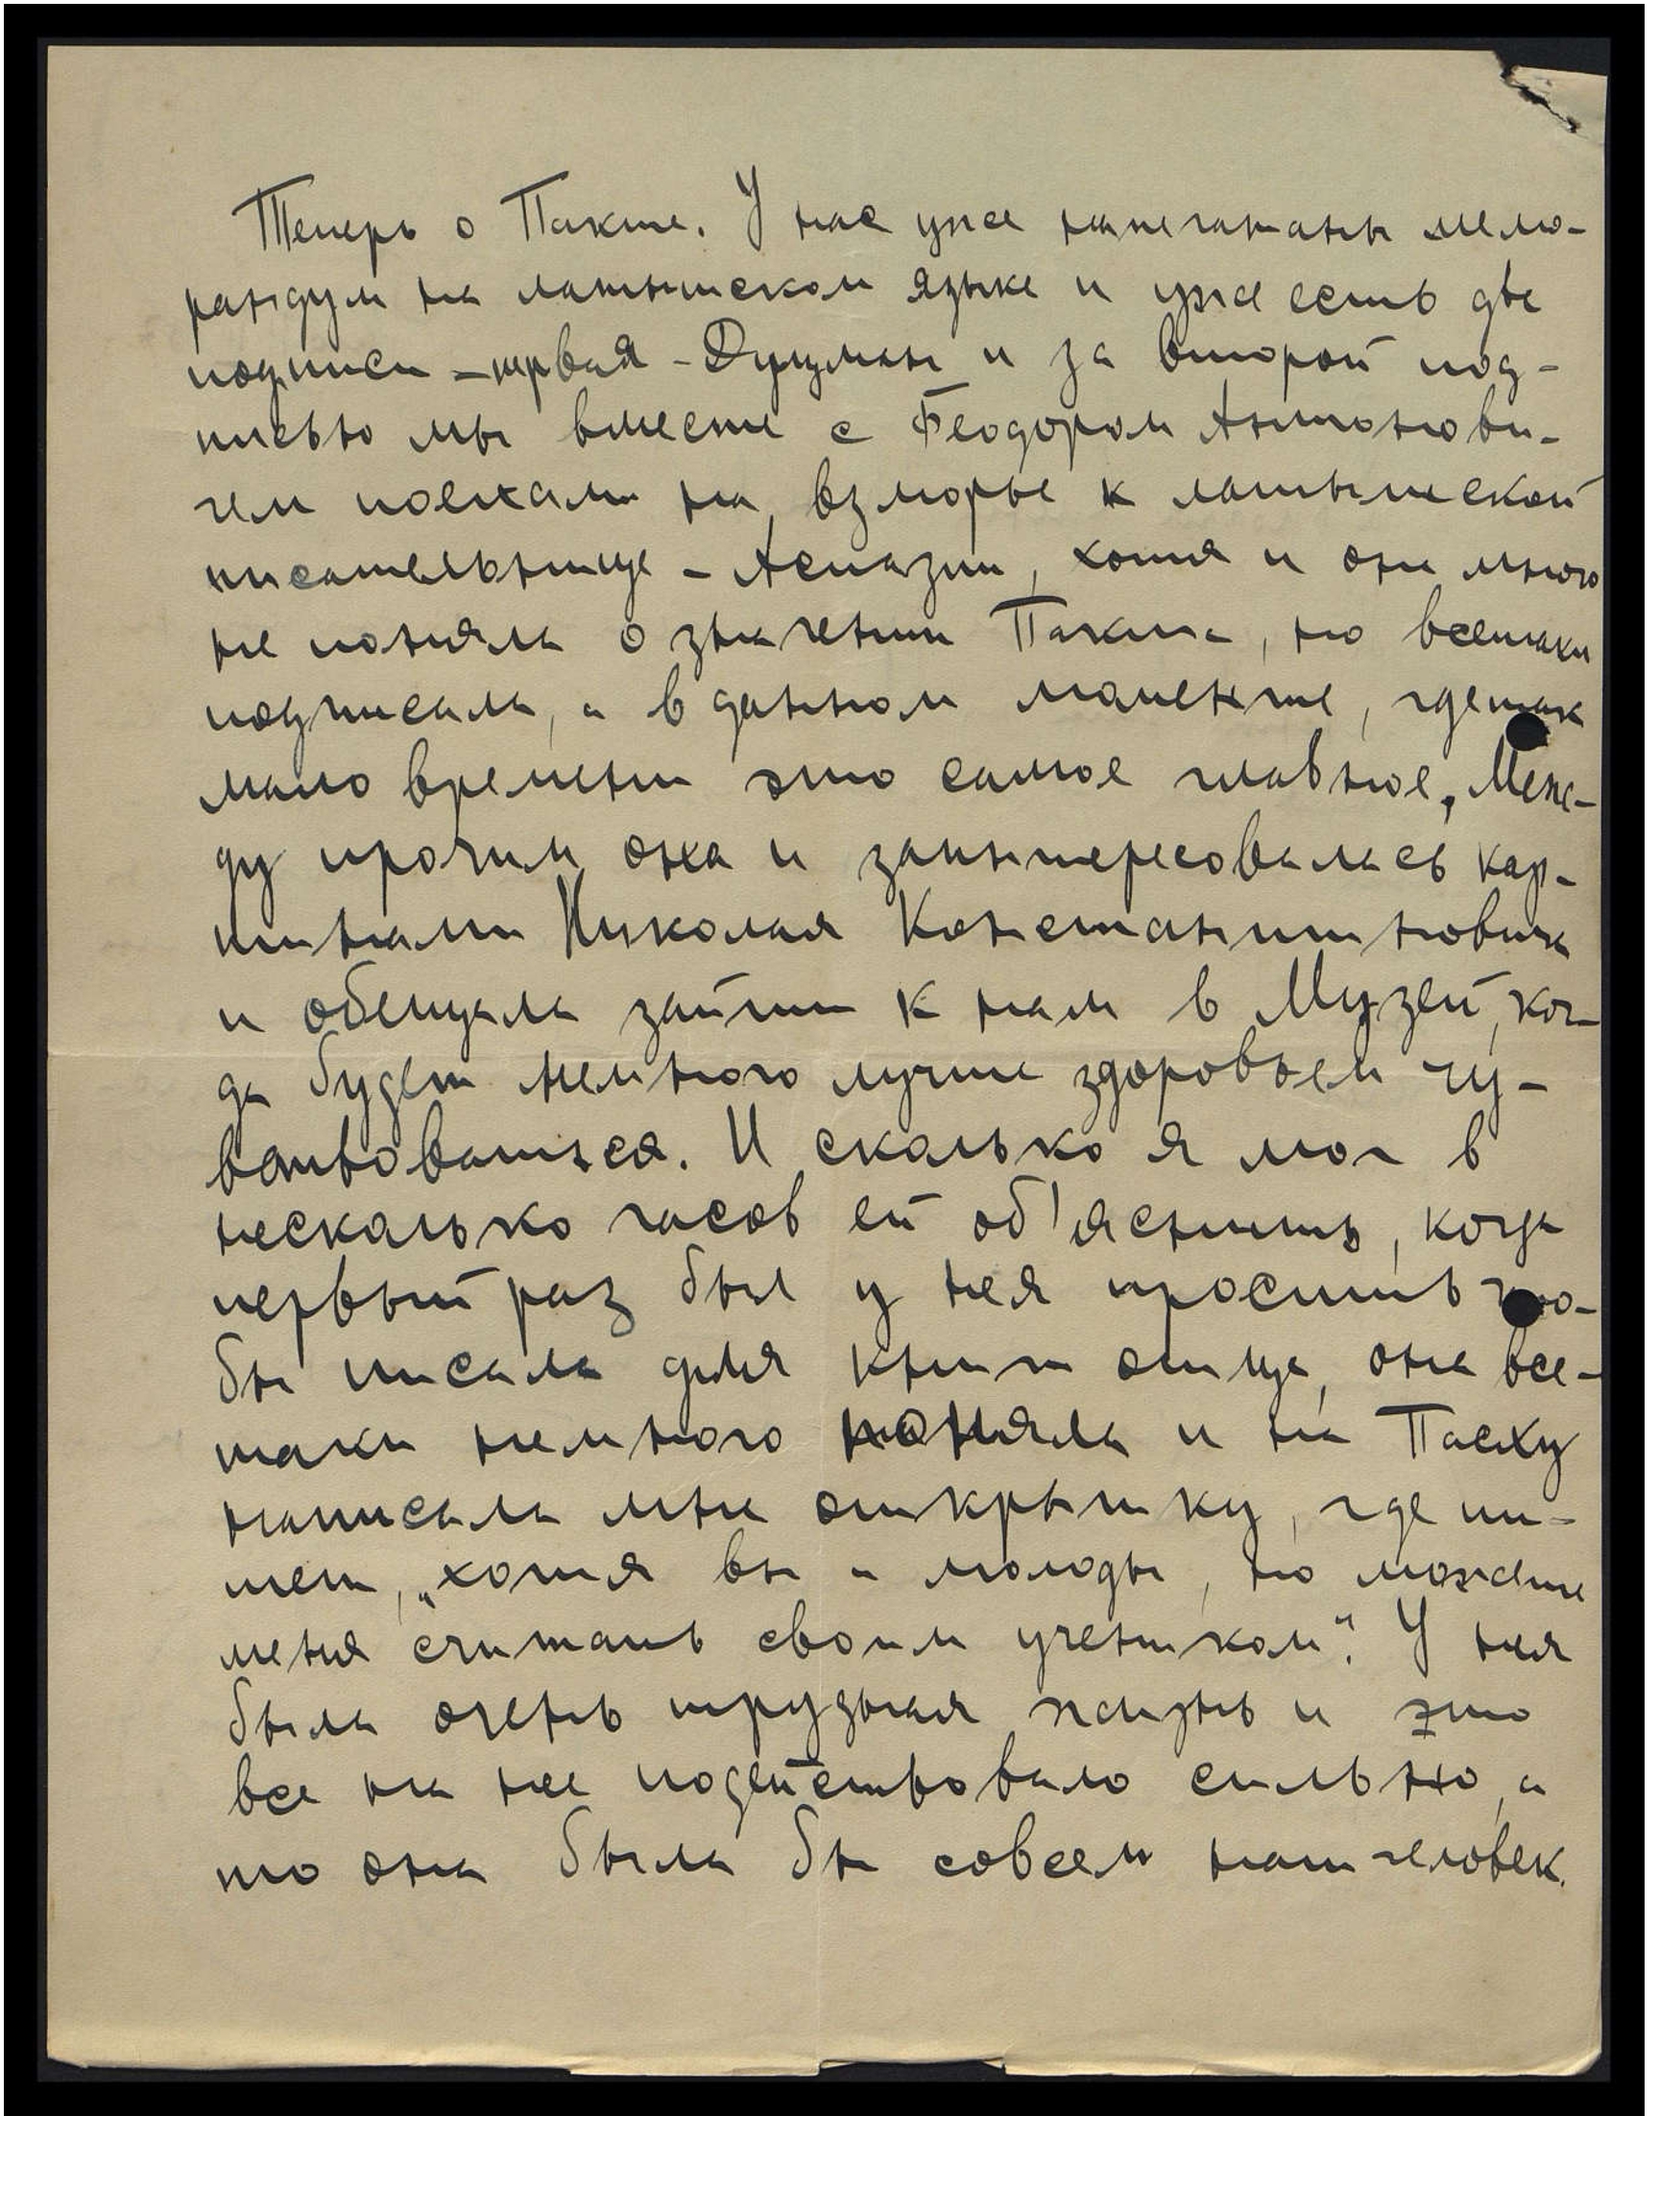 Теперь о Пакте. У нас уже напечатаны мемо-
рандум на латышском языке и уже есть две
подписи – первая – Друдман и за второй под-
писью мы вместе с Феодором Антонови-
чем поехали на взморье к латышской
писательнице – Аспазии, хотя и она много
не поняла о значении Пакта, но всетаки
подписала, а в данном моменте, где так
мало времени это самое главное. Меж-
ду прочим она и заинтересовалась кар-
тинами Николая Константиновича
и обещала зайти к нам в Музей, ког-
да будет немного лучше здоровьем чу-
вствоваться. И сколько я мог в
несколько часов ей об'яснить, когда
первый раз был у нея просить что-
бы писала для книги отца, она все-
таки немного поняла и на Пасху
написала мне открытку, где пи-
шет, „хотя вы и молоды, но можете
меня считать своим учеником". У нея
была очень трудная жизнь и это
все на нее подействовало сильно, а
то она была бы совсем наш человек.